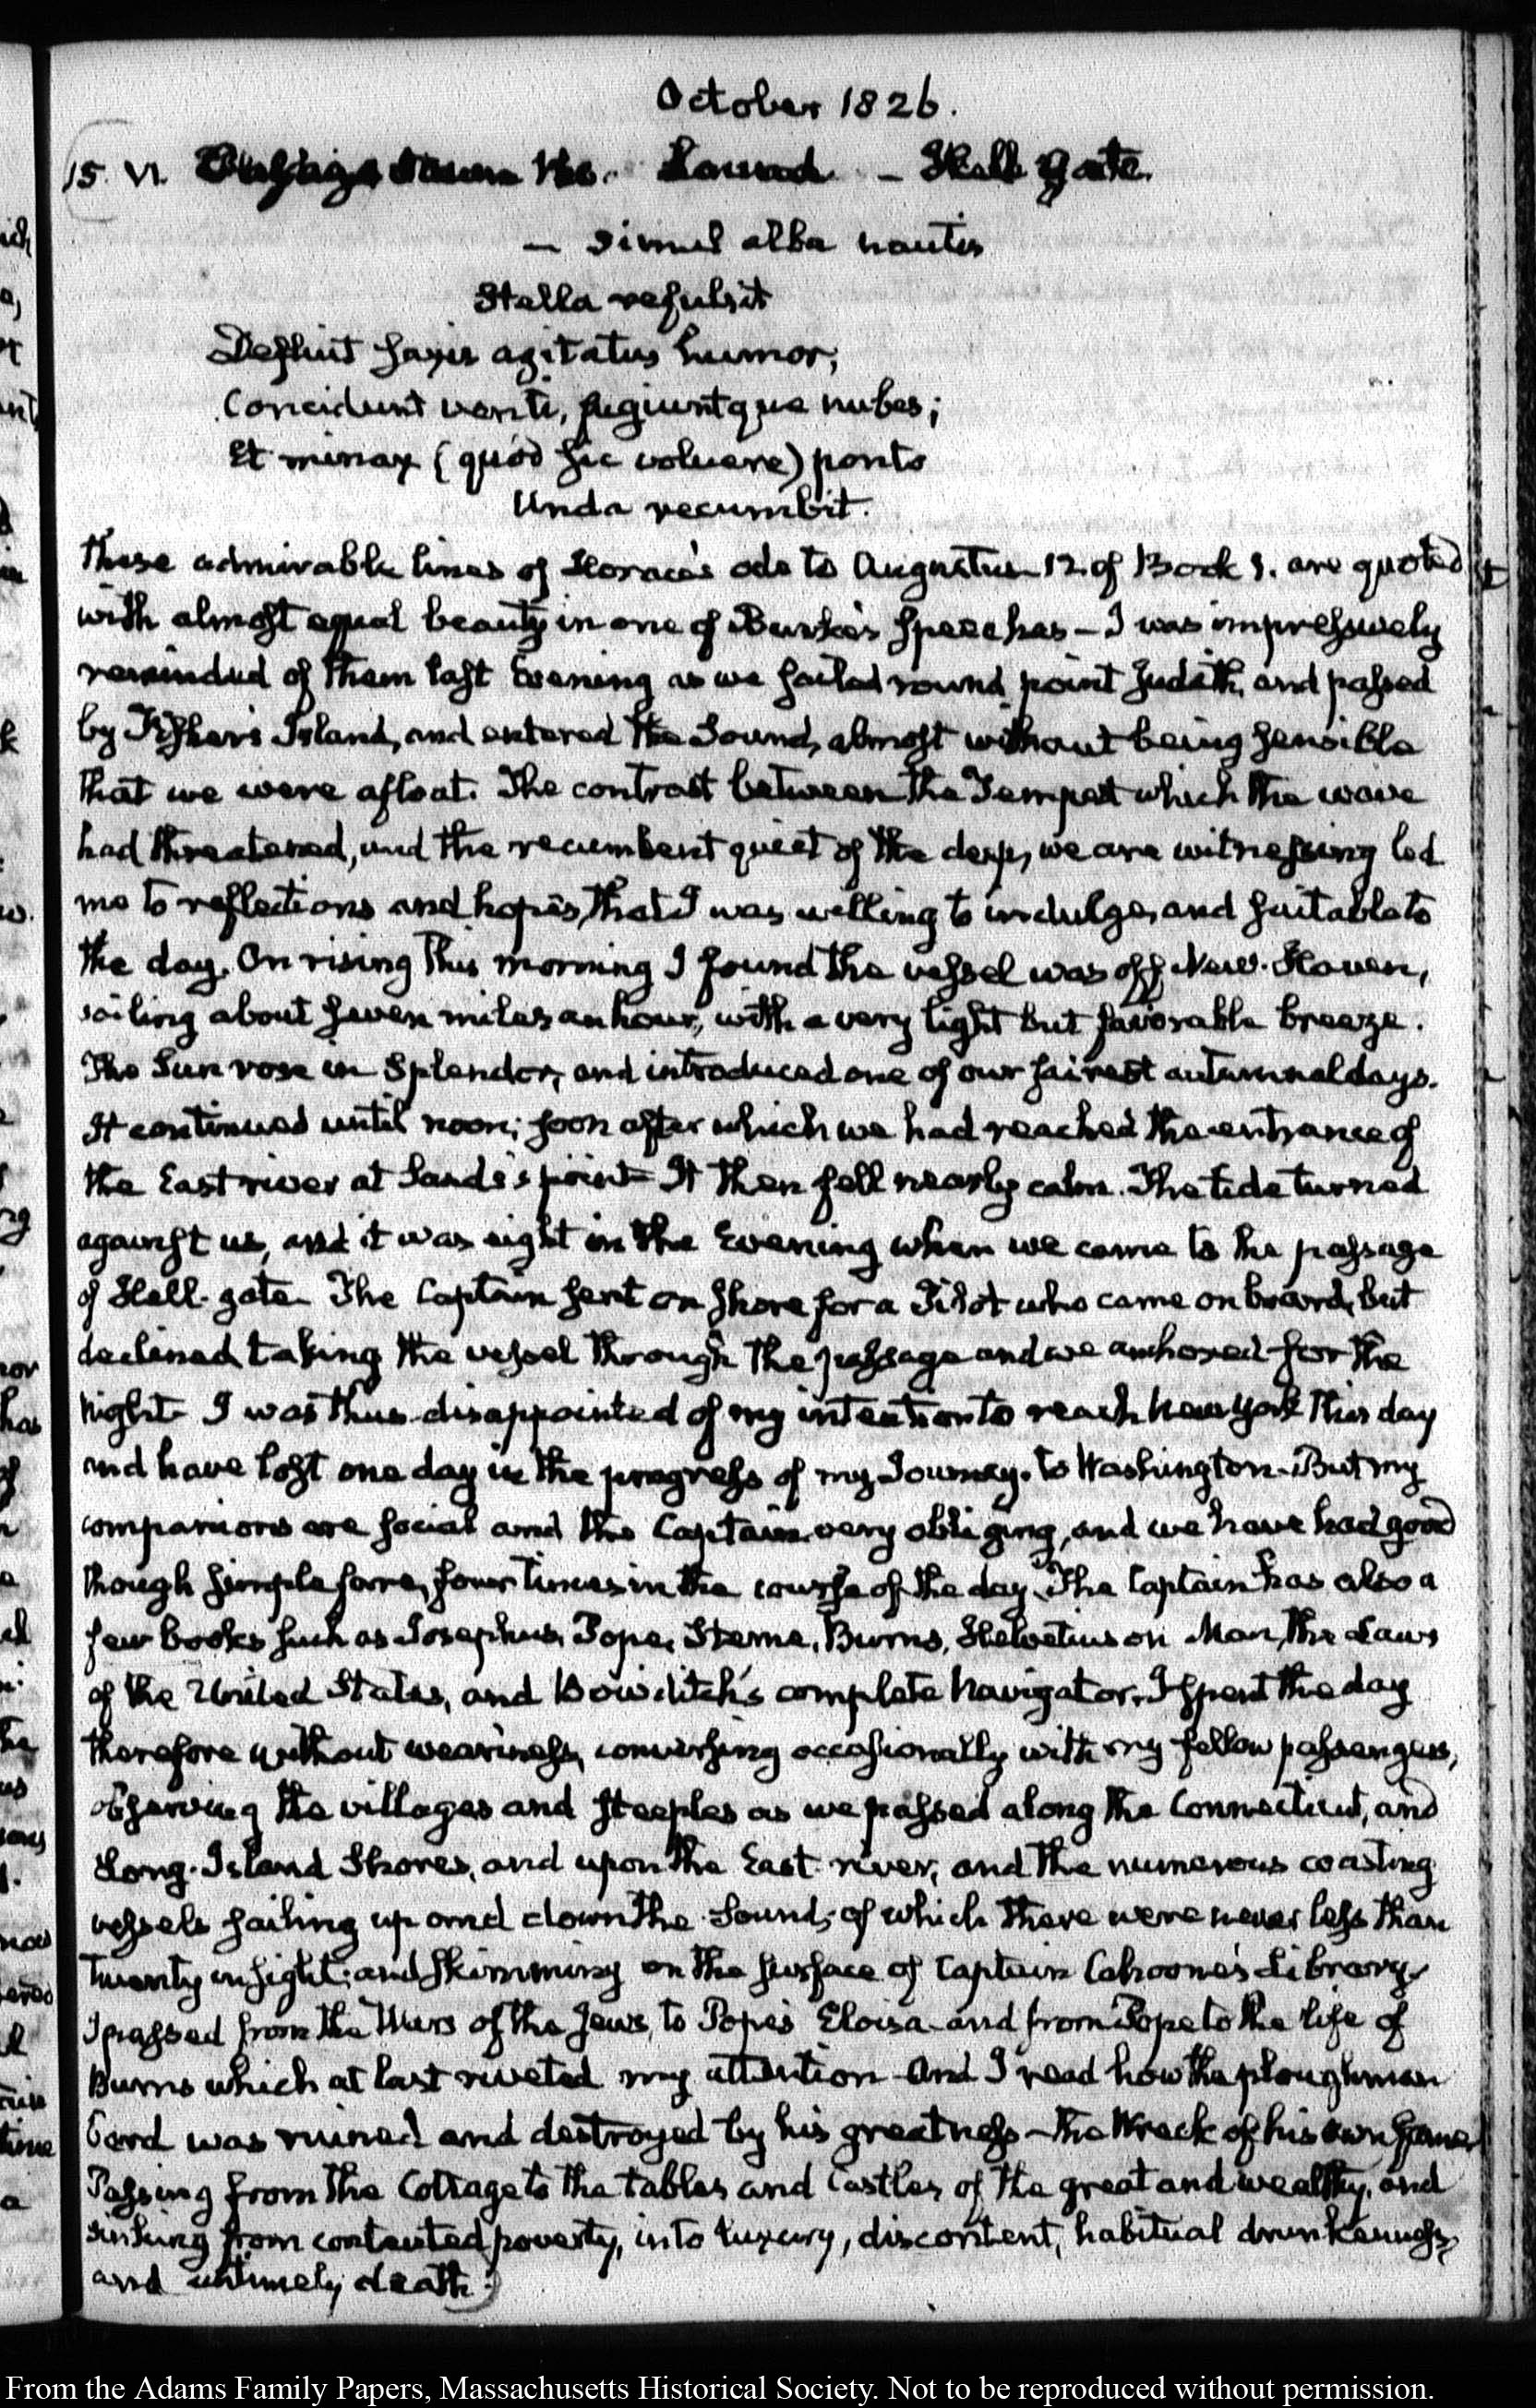 October 1826.
15. VI. Passage down the Sound — Hell Gate.
— Simul alba nautis
Stella refulsit
Defluit saxis agitatus humor,
Concidunt venti, fugiuntque nubes;
Et minax (quod sic voluere) ponto
Unda recumbit.
These admirable lines of Horace's ode to Augustus 12. of Book 1. are quoted
with almost equal beauty in one of Burke's speeches — I was impressively
reminded of them last Evening as we sailed round point Judith, and passed
by Fisher's Island, and entered the Sound, almost without being sensible
that we were afloat. The contrast between the Tempest which the wave
had threatened, and the recumbent quiet of the deep, we are witnessing led
me to reflections and hopes, that I was willing to indulge, and suitable to
the day. On rising this morning I found the vessel was off New-Haven,
sailing about seven miles an hour, with a very light but favorable breeze.
The Sun rose in Splendor, and introduced one of our fairest autumnal days.
It continued until noon; soon after which we had reached the entrance of
the East river at Sands's point — It then fell nearly calm. The tide turned
against us, and it was eight in the Evening when we came to the passage
of Hell-gate — The Captain sent on shore for a Pilot who came on board, but
declined taking the vessel through the passage and we anchored for the
night — I was thus disappointed of my intention to reach New York this day
and have lost one day in the progress of my Journey to Washington — But my
companions are social and the Captain very obliging, and we have had good
though simple fare, four times in the course of the day. The Captain has also a
few books such as Josephus, Pope, Sterne, Burns, Helvetius on Man, the Laws
of the United States, and Bowditch's complete Navigator. I spent the day
therefore without weariness, conversing occasionally with my fellow passengers,
observing the villages and steeples as we passed along the Connecticut, and
Long-Island Shores, and upon the East river, and the numerous coasting
vessels sailing up and down the Sound, of which there were never less than
twenty in sight; and skimming on the surface of Captain Cahoone's Library,
I passed from the Wars of the Jews, to Pope's Eloisa and from Pope to the life of
Burns which at last riveted my attention — And I read how the ploughman
bard was ruined and destroyed by his greatness — the Wreck of his own fame
Passing from the Cottage to the tables and Castles of the great and wealthy, and
sinking from contented poverty, into luxury, discontent, habitual drunkenness,
and untimely death.
From the Adams Family Papers, Massachusetts Historical Society. Not to be reproduced without permission.